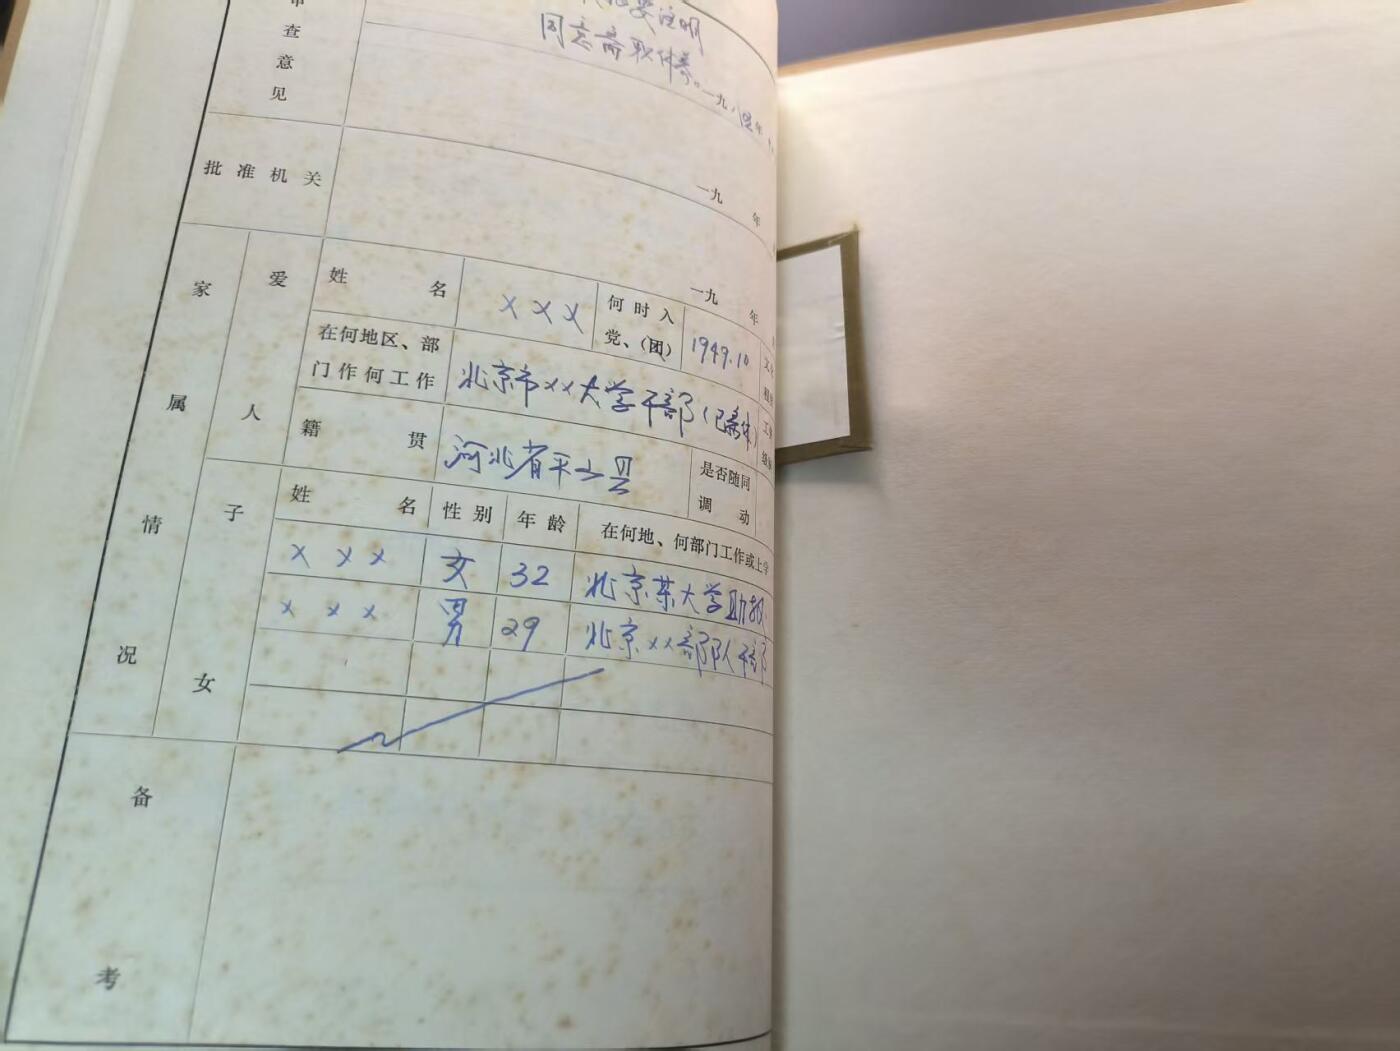 审查意见
要注明
同意离职休养。一九八四年
批准机关
一九 年
一九 年
家属情况
爱人
姓名 ××× 何时入党、(团) 1949.10
在何地区、部门作何工作 北京市××大学干部(已离休)
籍贯 河北省平山县 是否随同调动
子女
姓名 性别 年龄 在何地、何部门工作或上学
××× 女 32 北京某大学助教
××× 男 29 北京××部队干部
备考